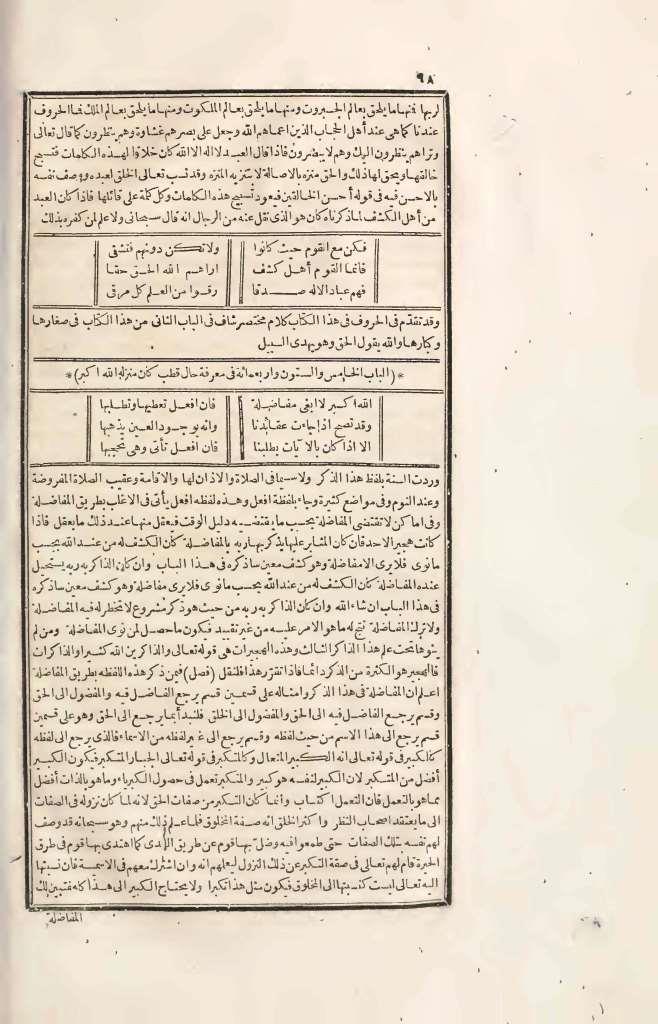 ٩٨
لربها فنهاما يلحق بعالم الجبروت ومنهاما يلحق بعالم الملكوت ومنهاما يلحق بعالم الملك فما الحروف
عندنا كما هى عند أهل الحجاب الذين اعماهم الله وجعل على بصرهم غشاوة وهم ينظرون كما قال تعالى
وتراهم ينظرون اليك وهم لا يبصرون فاذا قال العبد لا اله الا الله كان خلاقا لهذه الكلمات فتسبح
خالقها ويحق لها ذلك والحق منزه بالاصالة لا بتنزيه المنزه وقد نسب تعالى الخلق لعبده ووصف نفسه
بالاحسن فيه فى قوله أحسن الخالقين فيعود تسبيح هذه الكلمات وكل كلمة على قائلها فاذا كان العبد
من أهل الكشف لما ذكرناه كان هو الذى نقل عنه من الرجال انه قال سبحانى ولا علم لمن كفره بذلك
فكن مع القوم حيث كانوا ولا تكن دونهم فتشقى
فانما القوم أهل كشف اراهم الله الحق حقا
فهم عباد الاله صدقا رقوا من العلم كل مرقى
وقد تقدّم فى الحروف فى هذا الكتاب كلام مختصر شاف فى الباب الثانى من هذا الكتاب فى صغارها
وكبارها والله يقول الحق وهو يهدى السبيل
*(الباب الخامس والستون واربعمائة فى معرفة حال قطب كان منزله الله اكبر)*
الله اكبر لا ابغى مفاضلة فان افعل تعطيها وتطلبها
وقد تصح اذا جاءت عقائدنا وانه بوجود العين يذهبها
الا اذا كان بالايات يطلبنا فان افعل تأتى وهى تحجبها
وردت السنة بلفظ هذا الذكر ولا سيما فى الصلاة والاذان لها والاقامة وعقيب الصلاة المفروضة
وعند النوم وفى مواضع كثيرة وجاء بلفظة افعل وهذه لفظة افعل يأتى فى الاغلب بطريق المفاضلة
وفى اماكن لا تقتضى المفاضلة بحسب ما يقتضيه دليل الوقت فيعقل منها عند ذلك ما يعقل فاذا
كانت هجير الاحد فان كان المثابر عليها يذكر بها ربه بالمفاضلة كان الكشف له من عند الله بحسب
مانوى فلا يرى الا مفاضلة وهو كشف معين سأذكره فى هذا الباب وان كان الذاكر به ربه يستحيل
عنده المفاضلة كان الكشف له من عند الله بحسب مانوى فلا يرى مفاضلة وهو كشف معين سأذكره
فى هذا الباب ان شاء الله وان كان الذاكر به ربه من حيث هو ذكر مشروع لا تخطر له فيه المفاضلة
ولا ترك المفاضلة نتج له ما هو الامر عليه من غير تقييد فيكون ما حصل لمن نوى المفاضلة ومن لم
ينوها تحت علم هذا الذاكر الثالث وهذه الهجيرات هى قوله تعالى والذاكرين الله كثيرا والذاكرات
فالهجير هو الكثرة من الذكر دائما فاذا تقرر هذا فلنقل (فصل) فمن ذكر هذه اللفظة بطريق المفاضلة
اعلم ان المفاضلة فى هذا الذكر وامثاله على قسمين قسم يرجع الفاضل فيه والمفضول الى الحق
وقسم يرجع الفاضل فيه الى الحق والمفضول الى الخلق فلنبدأ بما يرجع الى الحق وهو على قسمين
قسم يرجع الى هذا الاسم من حيث لفظه وقسم يرجع الى غير لفظه من الاسماء فالذى يرجع الى لفظه
كالكبير فى قوله تعالى انه الكبير المتعال وكالمتكبر فى قوله تعالى الجبار المتكبر فيكون الكبير
أفضل من المتكبر لان الكبير لنفسه هو كبير والمتكبر تعمل فى حصول الكبرياء وما هو بالذات أفضل
مما هو بالتعمل فان التعمل اكتساب وانما كان التكبر من صفات الحق لانه لما كان نزوله فى الصفات
الى ما يعتقد اصحاب النظر واكثر الخلق انه صفة المخلوق فلما علم ذلك منهم وهو سبحانه قد وصف
لهم نفسه بتلك الصفات حتى طمعوا فيه وضل بها قوم عن طريق الهدى كما اهتدى بها قوم فى طرق
الحيرة قام لهم تعالى فى صفة التكبر عن ذلك النزول ليعلمهم انه وان اشترك معهم فى الاسمية فان نسبتها
اليه تعالى ليست كنسبتها الى المخلوق فيكون مثل هذا تكبرا ولا يحتاج الكبير الى هذا كله فتبين لك
المفاضلة